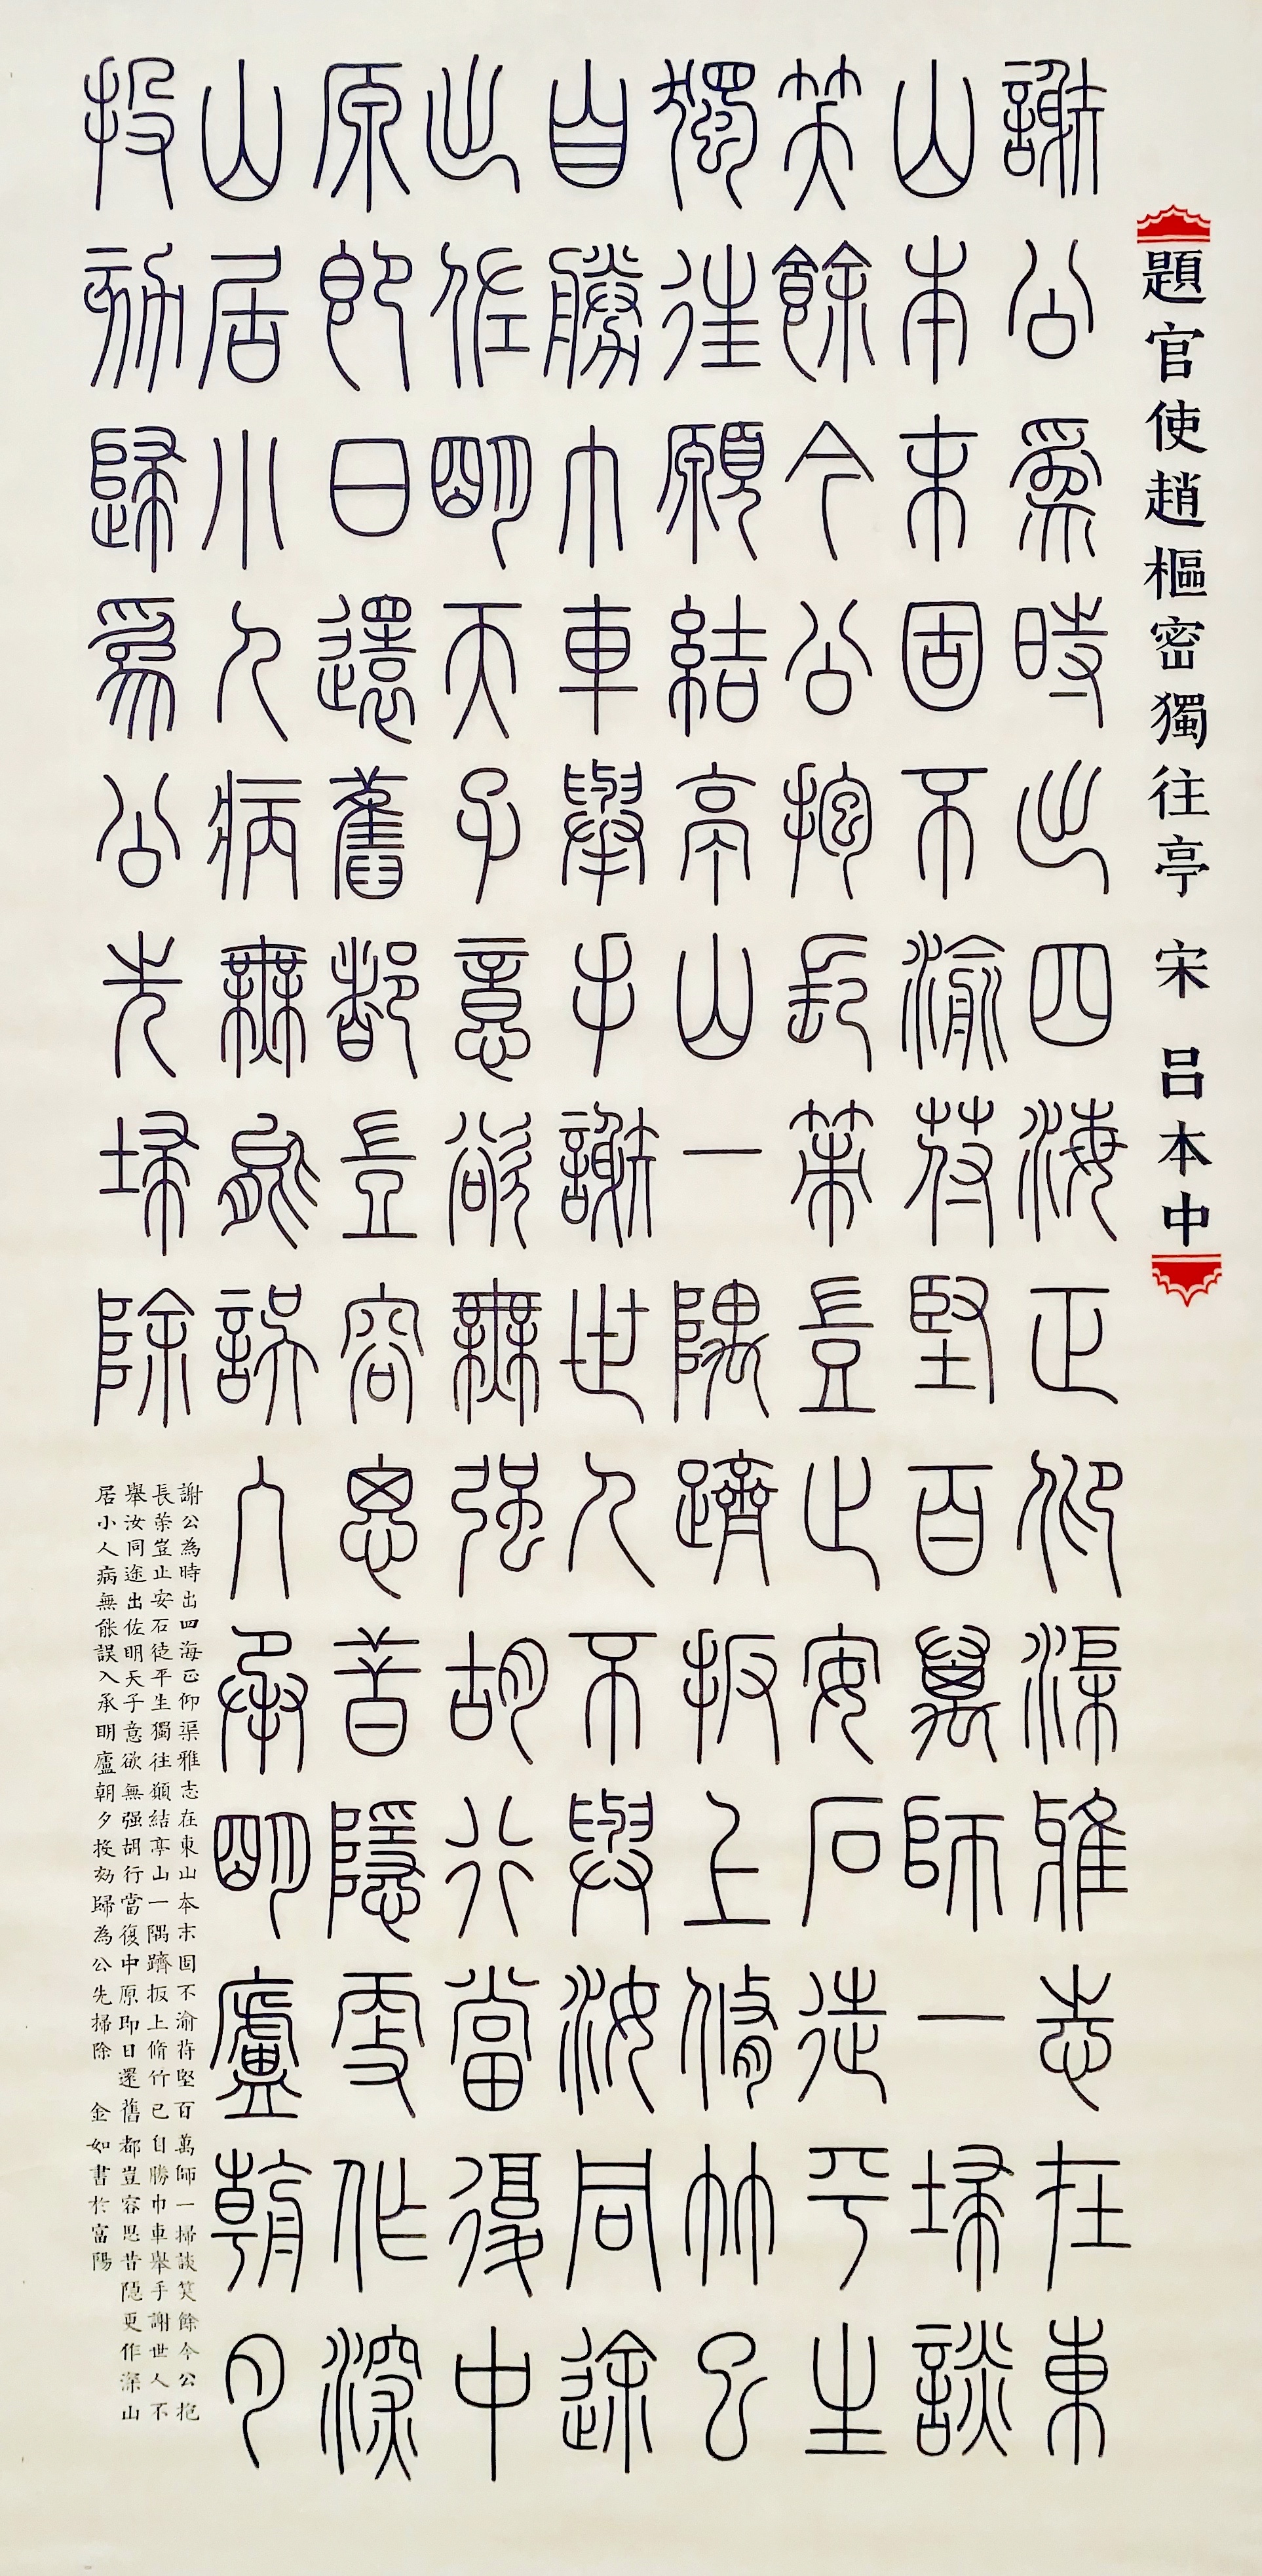 題官使趙樞密獨往亭 宋 呂本中
謝公為時出四海正仰渠雅志在東
山本末固不渝苻堅百萬師一掃談
笑餘今公抱長策豈止安石徒平生
獨往願結亭山一隅躋扳上脩竹已
自勝巾車舉手謝世人不與汝同途
出佐明天子意欲無强胡行當復中
原即日還舊都豈容思昔隱更作深
山居小人病無能誤入承明廬朝夕
投劾歸為公先掃除
謝公為時出四海正仰渠雅志在東山本末固不渝苻堅百萬師一掃談笑餘今公抱
長策豈止安石徒平生獨往願結亭山一隅躋扳上脩竹已自勝巾車舉手謝世人不
舉汝同途出佐明天子意欲無强胡行當復中原即日還舊都豈容思昔隱更作深山
居小人病無能誤入承明廬朝夕投劾歸為公先掃除 金如書於富陽